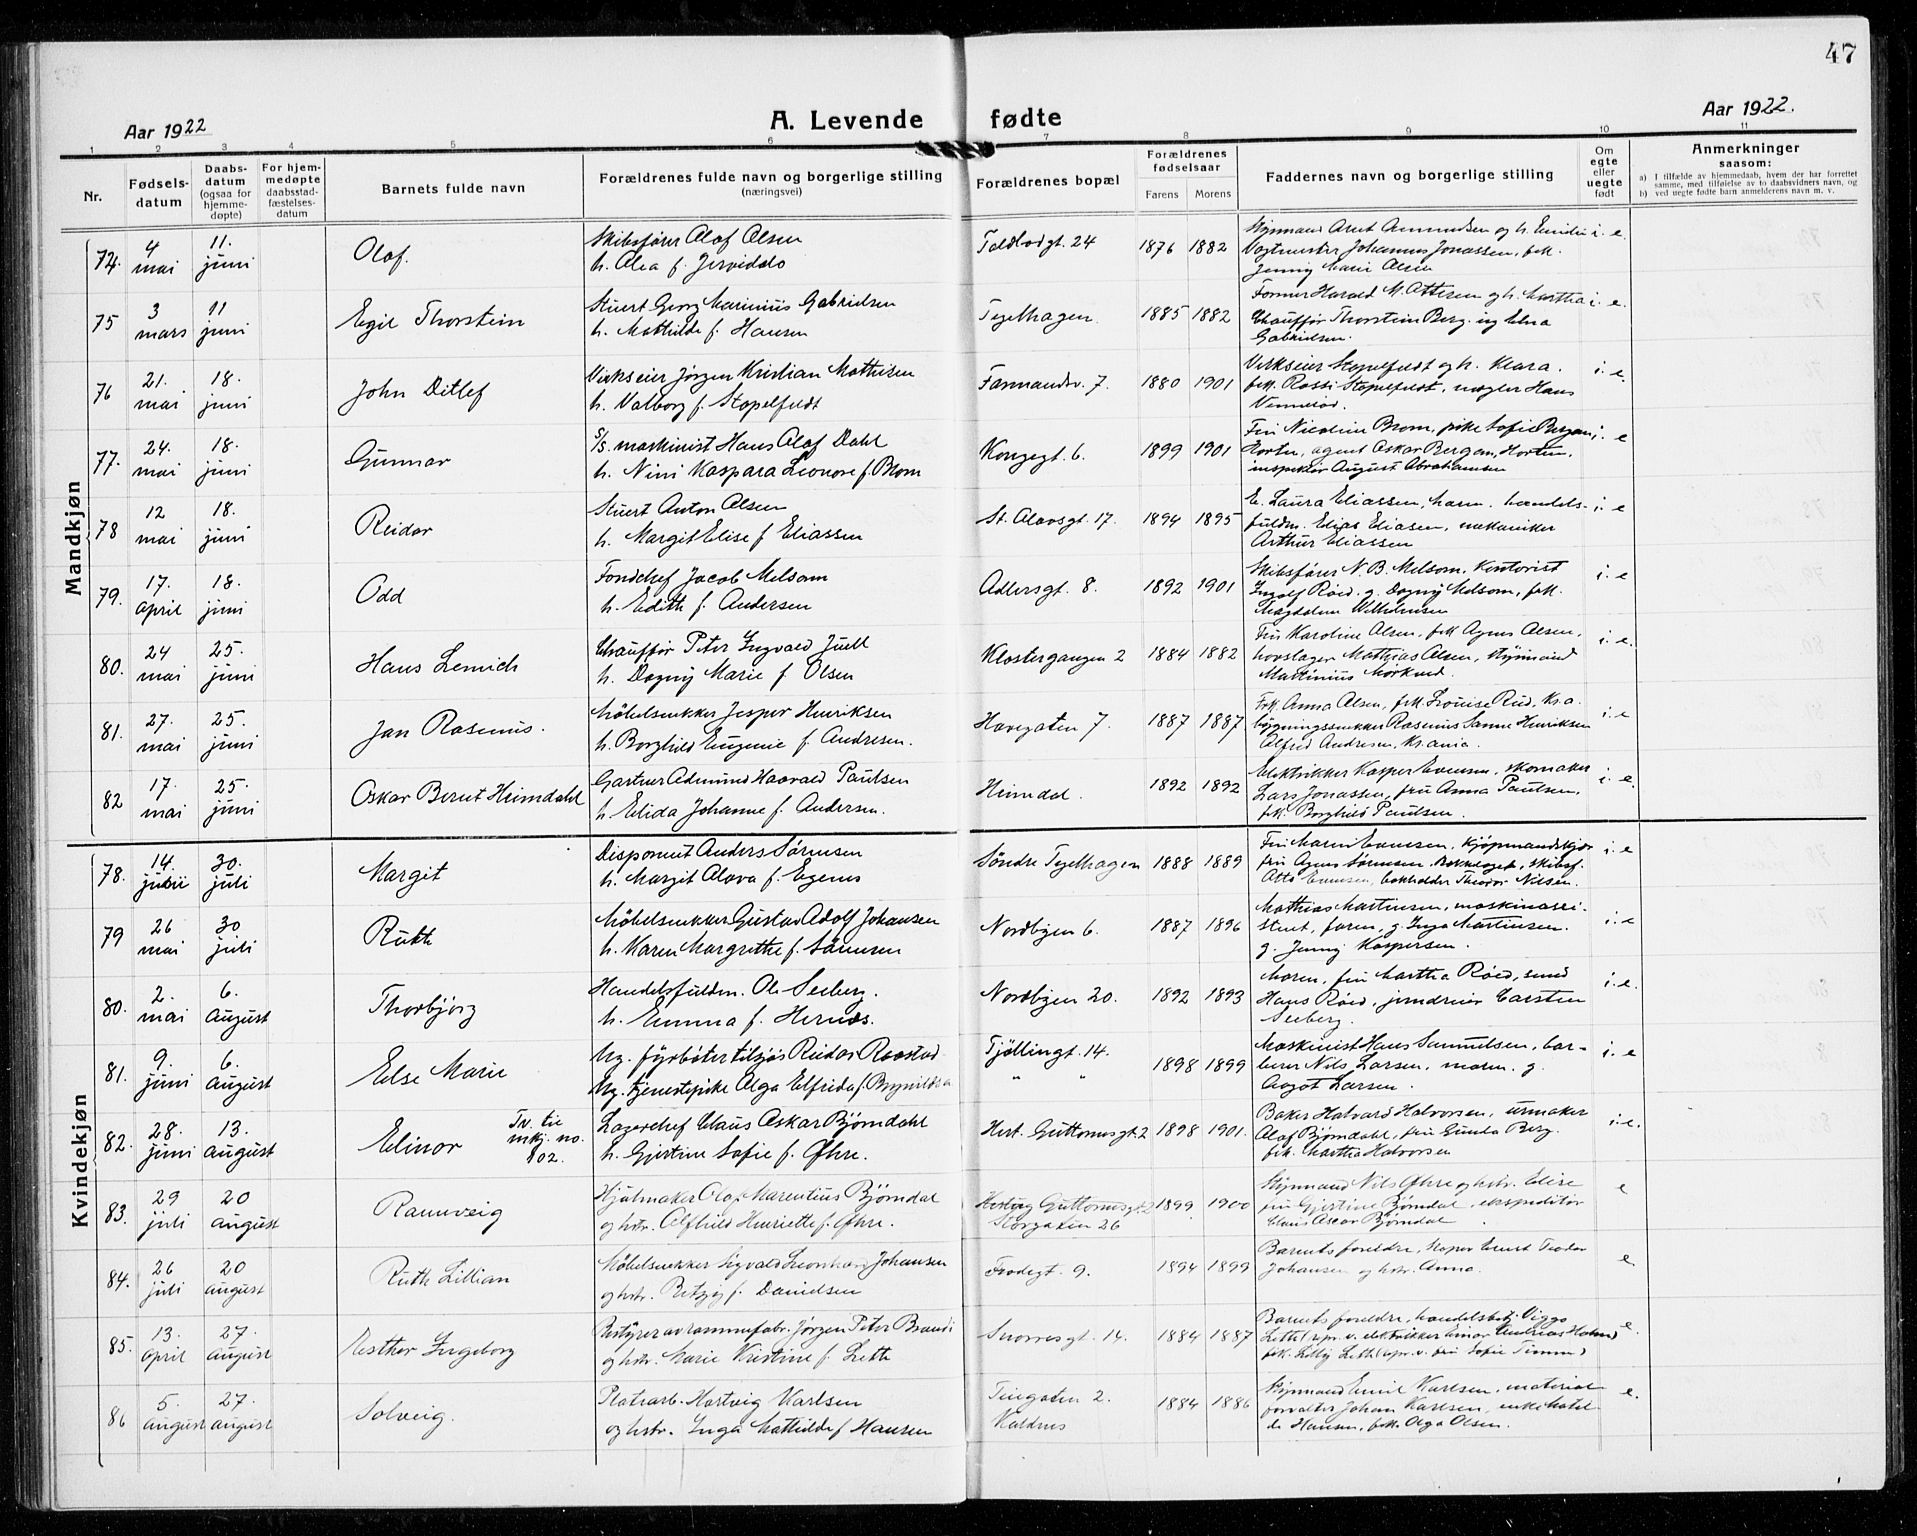 47
Aar 1922
A. Levende fødte
Aar 1922.
1 2 3 4 5 6 7 8 9 10 11
Nr.
Fødsels-
datum
Daabs-
datum
(ogsaa for
hjemme-
døpte)
For hjem-
medøpte
daabsstad-
fæstelses-
datum
Barnets fulde navn
Forældrenes fulde navn og borgerlige stilling
(næringsvei)
Forældrenes bopæl
Forældrenes
fødselsaar
Farens Morens
Faddernes navn og borgerlige stilling
Om
egte
eller
uegte
født
Anmerkninger
saasom:
a) I tilfælde av hjemmedaab, hvem der har forrettet
samme, med tilføielse av to daabsvidners navn, og
b) ved uegte fødte barn anmelderens navn m. v.
Mandkjøn
74. 4 mai 11. juni Olaf.
Skibsfører Olaf Olsen
h. Alea f.
Toldbodgt. 24 1876 1882
Styrmand Arnt Amundsen og h. Emilie
Vogtmester Johannes Jonassen, frk.
Jenny Marie Olsen
i. e.
75 3 mars 11 juni Egil Thorstein
Stuert Georg Marinius Gabrielsen
h. Mathilde f. Hansen
Tegelhagen. 1885 1882
Former Harald M. Attesen og h. Martha
Chauffør Thorstein Berg. og Elna
Gabrielsen.
i. e.
76 21. mai 18. juni John Ditlef
Verkseier Jørgen Kristian Mathisen
h. Valborg f. Stapelfeldt
Farmandsv. 7. 1880 1901
Verkseier Stapelfeldt og h. Klara.
frk. Rossi Stapelfeldt, mægler Hans
Vennerød.
i. e.
77. 24. mai 18. juni Gunnar
S/s. maskinist Hans Olaf Dahl
h. Nini Kaspara Leonore f. Brom
Kongegt. 6. 1899 1901
Fru Nicoline Brom, pike Sofie Bergan
Horten, agent Oskar Bergan, Horten,
inspektør August Abrahamsen
i. e
78 12 mai 18. juni Reidar
Stuert Anton Olsen
h. Margit Elise f Eliassen
St. Olavsgt. 17. 1894 1895
E. Laura Eliassen, . handels-
fuldm. Elias Eliasen, mekaniker
Arthur Eliassen
i. e
79. 17. April 18. juni Odd
Fondchef Jacob Melsom
h. Edith f. Andersen
Adlersgt. 8. 1892 1901
Skibsfører N. B. Melsom, kontorist
Ingolf Røed. g. Dagny Melsom, frk.
Magdalene Wilhelmsen
i. e
80. 24 mai 25. juni Hans Lemich
Chauffør Peter Ingvald Juell
h. Dagny Marie f Olsen
Klostergangen 2 1884 1882
Fru Karoline Olsen, frk Agnes Olsen,
hovslager Mathias Olsen, styrmand
Martinius Mørkved.
i. e.
81. 27. mai 25. juni Jan Rasmus.
Møbelsnekker Jesper Henriksen
h. Borghild Eugenie f. Andresen.
Havegaten 7. 1887 1887
Frk. Anna Olsen, frk. Louise Rud, Kr.a.
bygningssnekker Rasmus Sanne Henriksen
Alfred Andresen, Kr.ania.
i. e
82 17. mai 25. juni Oskar Bernt Heimdahl
Gartner Admund Haavald Paulsen
h Elida Johanne f. Andersen.
Heimdal. 1892 1892
Elektrikker Kasper Evensen, skomaker
Lars Jonassen, fru Anna Paulsen,
frk. Borghild Paulsen.
i. e.
Kvindekjøn
78. 14. 30. juli Margit
Disponent Anders Sørensen
h. Margit Olava f. Egenes
Søndre Tegelhagen 1888 1889
Fru Marn Evensen, Kjøpmandskjær
fru Agnes Sørensen, , skibsf.
Otto Evensen, bokholder Theodor Nilsen.
i. e
79 26 mai 30 juli Ruth
Møbelsnekker Gustav Adolf Johansen
h. Karen Margrethe f. Sørensen
Nordbyen 6. 1887 1896
Mathias Martinsen, maskinassi-
stent, faren, g. Inga Martinsen.
g. Jenny Kaspersen.
i. e
80. 2. mai 6. August Thorbjørg
Handelsfuldm. Ole Seeberg.
h. Emma f. Hernæs.
Nordbyen 20. 1892 1893
Moren, fru Martha Røed, smed
Hans Røed, jerndreier Carsten
Seeberg.
i. e.
81. 9. juni 6. August Else Marie
Ug. fyrbøter tilsjøs Reidar Raastad
Ug. tjenestepike Olga Elfrida f. Brynildsen
Tjøllingt. 14. " " 1898 1899
Maskinist Hans Samuelsen, bar-
berer Nils Larsen, moren. g.
Aagot Larsen.
i. e
82. 28. juni 13. August Elinor Tv. til mkj. no. 102.
Lagerchef Claus Oskar Bjørndahl
h. Gjertine Sofie f. Øhre.
Hert. Guttormsgt. 2 1898 1901.
Baker Halvard Halvorsen, urmaker
Olaf Bjørndahl, fru Gunda Berg.
frk. Martha Halvorsen
i. e.
83. 29 juli 20 August Rannveig
Hjulmaker Olaf Marentius Bjørndal
og hstr. Alfhild Henriette f. Øhre.
Hertug Guttormsgt 2
Storgaten 26
1899 1900
Styrmand Nils Øhre og hstr. Elise
fru Gjertine Bjørndal, ekspeditør
Claus Oscar Bjørndal
e
84. 26 juli 20 august Ruth Lillian
Møbelsnekker Sigvald Leonhard Johansen
og hstr. Betzy f. Danielsen
Frodegt. 9. 1894 1899
Barnets foreldre, Ernst Teodor
Johansen og hstr. Anna.
e.
85. 13. April 27. August Esther Ingeborg
Bestyrer av rammefabr. Jørgen Peter Brandi
og hstr. Marie Kristine f. Leth
Snorresgt. 14. 1884 1887
Barnets foreldre, handelsbetj. Viggo
Leth (repr. v. elektrikker Einar Andreas Holand
frk. Lilly Leth (repr. v. fru Sofie Timm)
e.
86 5. August 27. August Solveig.
Platearb. Hartvig Karlsen
og hstr. Inga Mathilde f Hansen
Tinegaten 2.
Kaldnes
1884 1886
Styrmand Emil Karlsen, material
forvalter Johan Karlsen, enke Matil
de Hansen, frk. Olga Olsen.
e.